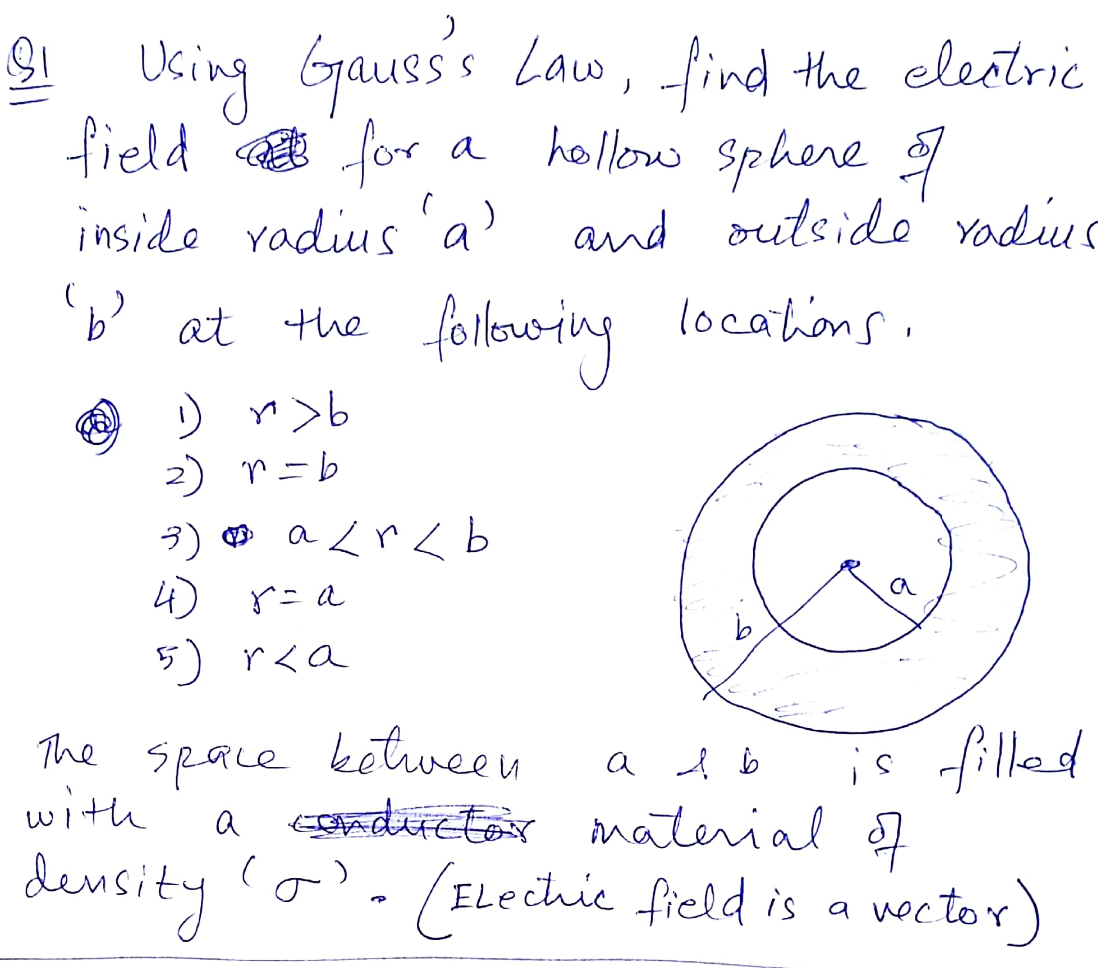 Q1 Using Gauss's Law, find the electric
field for a hollow sphere of
inside radius 'a' and outside radius
'b' at the following locations.
1) r > b
2) r = b
3) a < r < b
4) r = a
5) r < a
a
b
The space between a & b is filled
with a conductor material of
density 'σ'. (Electric field is a vector)